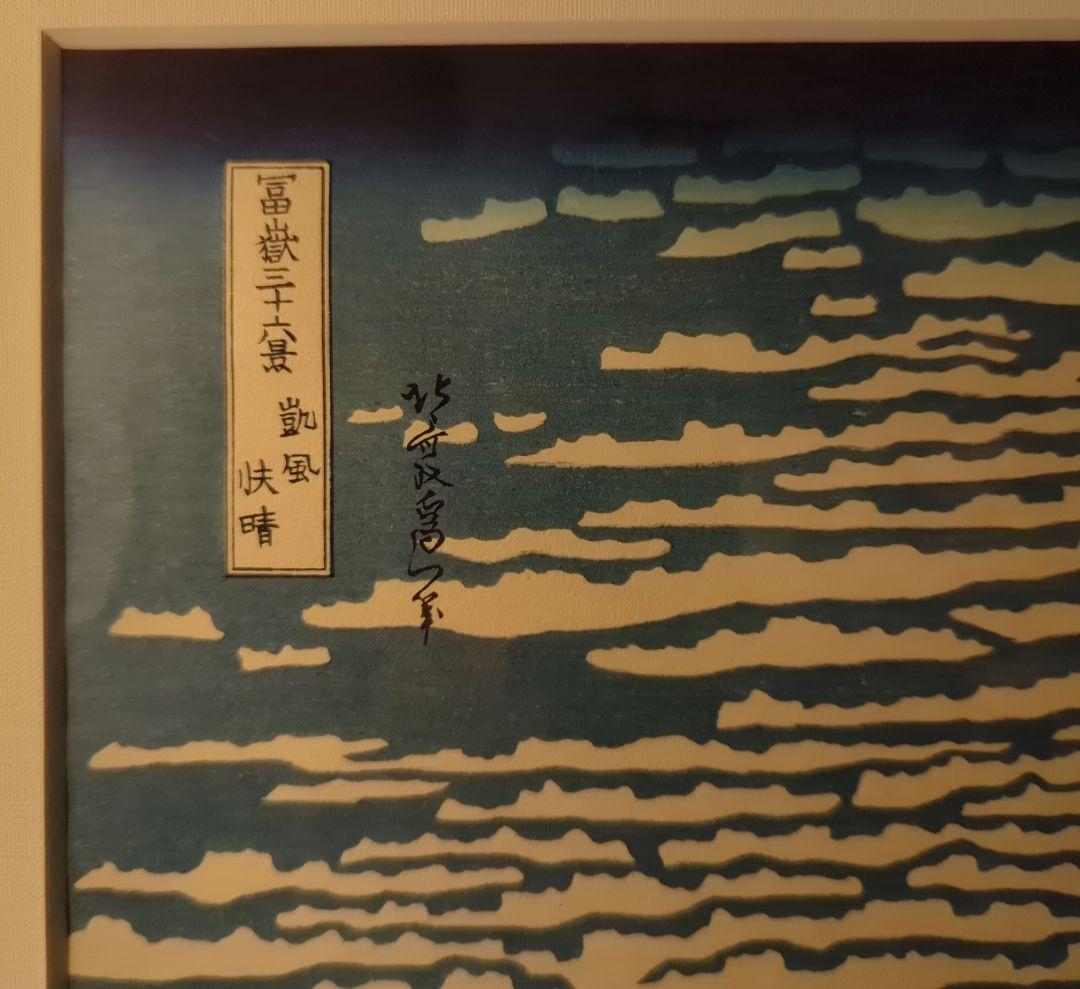 冨嶽三十六景
凱風
快晴
北斎改為一筆